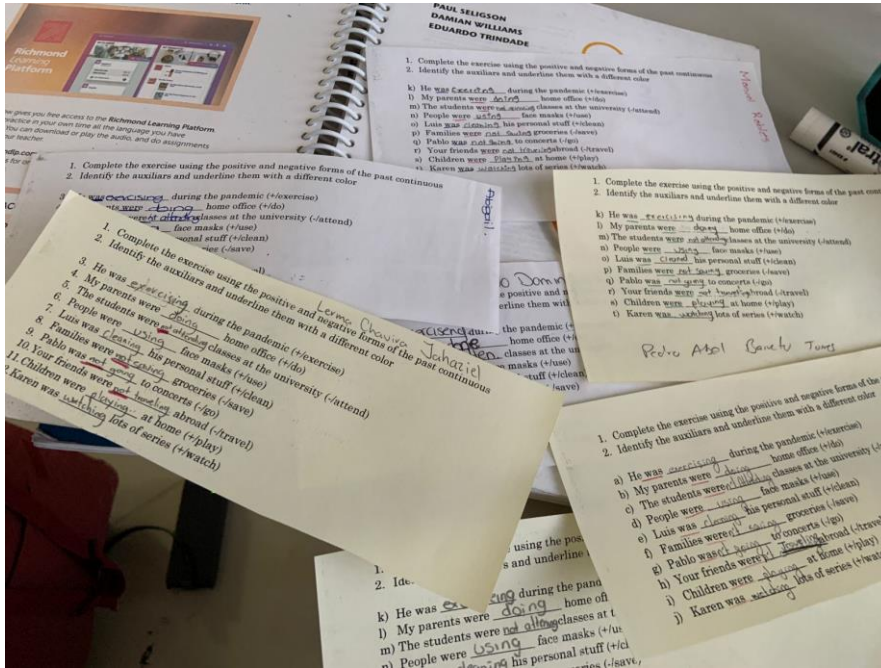 PAUL SELIGSON
DAMIAN WILLIAMS
EDUARDO TRINDADE
Richmond
Learning
Platform
gives you free access to the Richmond Learning Platform
practice in your own time at the language you have
You can download or play the audio, and do assignments
your teacher
1. Complete the exercise using the positive and negative forms of the past continuous
2. Identify the auxiliars and underline them with a different color
k) He was during the pandemic (+/exercise)
l) My parents were doing home office (+/do)
m) The students were not classes at the university (-/attend)
n) People were using face masks (+/use)
o) Luis was cleaning his personal stuff (+/clean)
p) Families were not saving groceries (-/save)
q) Pablo was not to concerts (-/go)
r) Your friends were not abroad (-/travel)
s) Children were Playing at home (+/play)
t) Karen was watching lots of series (+/watch)
Manuel Robles
1. Complete the exercise using the positive and negative forms of the past continuous
2. Identify the auxiliars and underline them with a different color
exercising during the pandemic (+/exercise)
doing home office (+/do)
attending classes at the university (-/attend)
face masks (+/use)
personal stuff (+/clean)
(-/save)
Abigail.
1. Complete the exercise using the positive and negative forms of the past continuous
2. Identify the auxiliars and underline them with a different color
Lerma Chavira Jahaziel
3. He was exercising during the pandemic (+/exercise)
4. My parents were doing home office (+/do)
5. The students were not attending classes at the university (-/attend)
6. People were using face masks (+/use)
7. Luis was cleaning his personal stuff (+/clean)
8. Families were not saving groceries (-/save)
9. Pablo was not going to concerts (-/go)
10. Your friends were not traveling abroad (-/travel)
11. Children were playing.. at home (+/play)
Karen was watching lots of series (+/watch)
the pandemic
home office
classes at the
masks (+/use)
stuff (+/clean)
(-/save)
1. Complete the exercise using the positive and negative forms of the past
2. Identify the auxiliars and underline them with a different color
k) He was exercising during the pandemic (+/exercise)
l) My parents were home office (+/do)
m) The students were not attending classes at the university (-/attend)
n) People were using face masks (+/use)
o) Luis was cleaned his personal stuff (+/clean)
p) Families were not saving groceries (-/save)
q) Pablo was not to concerts (-/go)
r) Your friends were not traveling abroad (-/travel)
s) Children were playing at home (+/play)
t) Karen was watching lots of series (+/watch)
Pedro
1. Complete the exercise using the positive and negative forms of the
2. Identify the auxiliars and underline them with a different color
a) He was exercising during the pandemic (+/exercise)
b) My parents were doing home office (+/do)
c) The students were classes at the university
d) People were using face masks (+/use)
e) Luis was his personal stuff (+/clean)
f) Families were saving groceries (-/save)
g) Pablo was going to concerts (-/go)
h) Your friends were traveling abroad
i) Children were playing at home (+/play)
j) Karen was watching lots of series
using the
and underline
k) He was during the
l) My parents were doing home
m) The students were not classes at
n) People were using face masks
his personal stuff